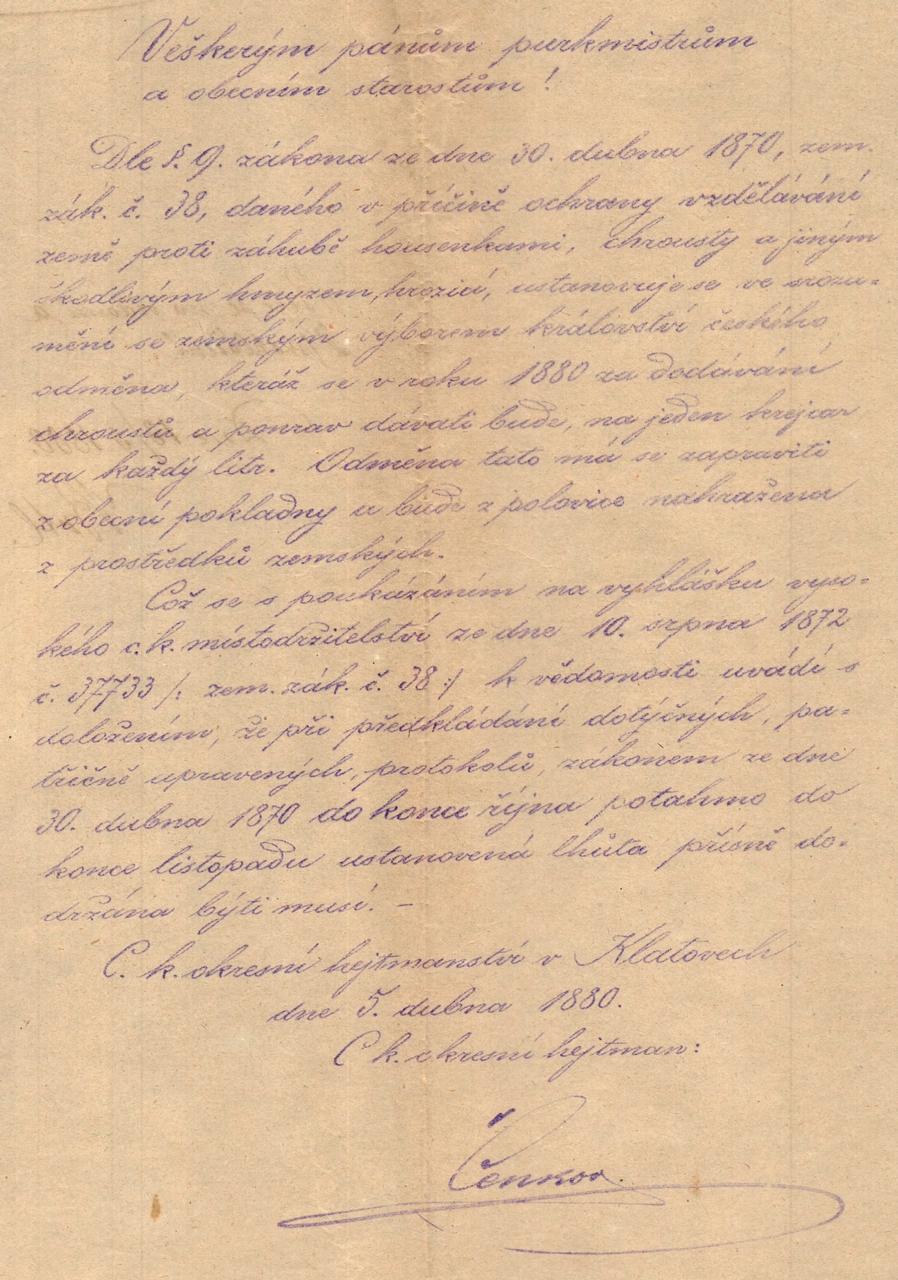 Veškerým pánům purkmistrům
a obecním starostům!
Dle §. 9. zákona ze dne 30. dubna 1870, zem.
zák. č. 38, daného v příčině ochrany vzdělávání
země proti záhubě housenkami, chrousty a jiným
škodlivým hmyzem, hrozící, ustanovuje se ve srozu-
mění se zemským výborem království českého
odměna, kteráž se v roku 1880 za dodávání
chroustů a ponrav dávati bude, na jeden krejcar
za každý litr. Odměna tato má se zapraviti
z obecní pokladny a bude z polovice nahražena
z prostředků zemských.
Což se s poukázáním na vyhlášku vyso-
kého c. k. místodržitelství ze dne 10. srpna 1872
č. 37733 /: zem. zák. č. 38 :/ k vědomosti uvádí s
doložením, že při předkládání dotýčných, pa-
třičně upravených, protokolů, zákonem ze dne
30. dubna 1870 do konce října potahmo do
konce listopadu ustanovená lhůta přísně do-
držána býti musí. –
C. k. okresní hejtmanství v Klatovech
dne 5. dubna 1880.
C k. okresní hejtman: